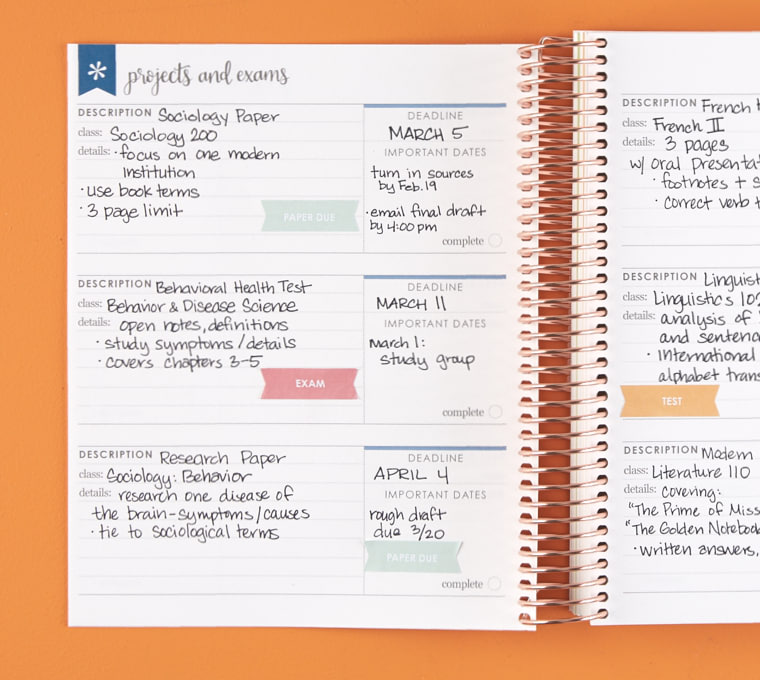 projects and exams
DESCRIPTION Sociology Paper
class: Sociology 200
details: · focus on one modern
Institution
· use book terms
· 3 page limit
PAPER DUE
DEADLINE
MARCH 5
IMPORTANT DATES
turn in sources
by Feb. 19
· email final draft
by 4:00 pm
complete
DESCRIPTION Behavioral Health Test
class: Behavior & Disease Science
details: open notes, definitions
· study symptoms / details
· covers chapters 3-5
EXAM
DEADLINE
MARCH 11
IMPORTANT DATES
March 1:
study group
complete
DESCRIPTION Research Paper
class: Sociology: Behavior
details: research one disease of
the brain-symptoms/causes
· tie to sociological terms
DEADLINE
APRIL 4
IMPORTANT DATES
rough draft
due 3/20
PAPER DUE
complete
DESCRIPTION French
class: French II
details: 3 pages
w/ oral Presentat
· footnotes + s
· correct verb t
DESCRIPTION Linguist
class: Linguistics 102
details: analysis of
and sentenc
· International
alphabet trans
TEST
DESCRIPTION Modern
class: Literature 110
details: covering:
"The Prime of Miss
"The Golden Notebook
· written answers,